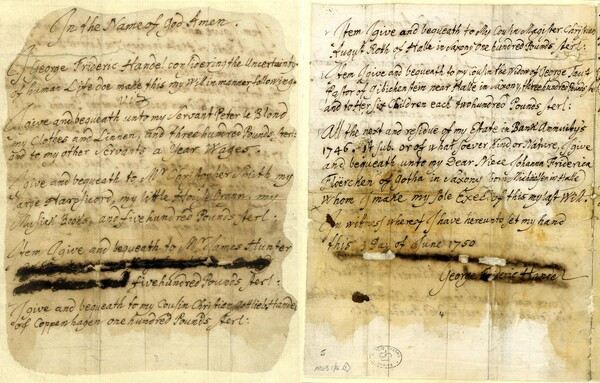 In the Name of God Amen.
I George Frideric Handel considering the Uncertainty
of human Life doe make this my Will in manner following
viz.
I give and bequeath unto my Servant Peter le Blond
my Clothes and Linnen, and three hundred Pounds sterl:
and to my other Servants a Year Wages.
I give and bequeath to Mr Christopher Smith my
large Harpsicord, my little House Organ, my
Musick Books, and five hundred Pounds sterl:
Item I give and bequeath to Mr James Hunter
five hundred Pounds sterl:
I give and bequeath to my Cousin Christian Gottlieb Handel
of Coppenhagen one hundred Pounds sterl:
Item I give and bequeath to My Cousin Magister Christian
August Roth of Halle in Saxony one hundred Pounds sterl:
Item I give and bequeath to my Cousin the Widow of George Taust
Pastor of Giebichenstein near Halle in Saxony three hundred Pounds
and to her six Children each two hundred Pounds sterl:
All the next and residue of my Estate in Bank Annuity's
1746. 1st sub. or of what soever Kind or Nature, I give
and bequeath unto my Dear Niece Johanna Friderica
Flöerchen of Gotha in Saxony born Michaelsen in Halle
Whom I make my Sole Exec: of this my last Will.
In witness Whereof I have hereunto set my hand
this 1 Day of June 1750
George Frideric Handel